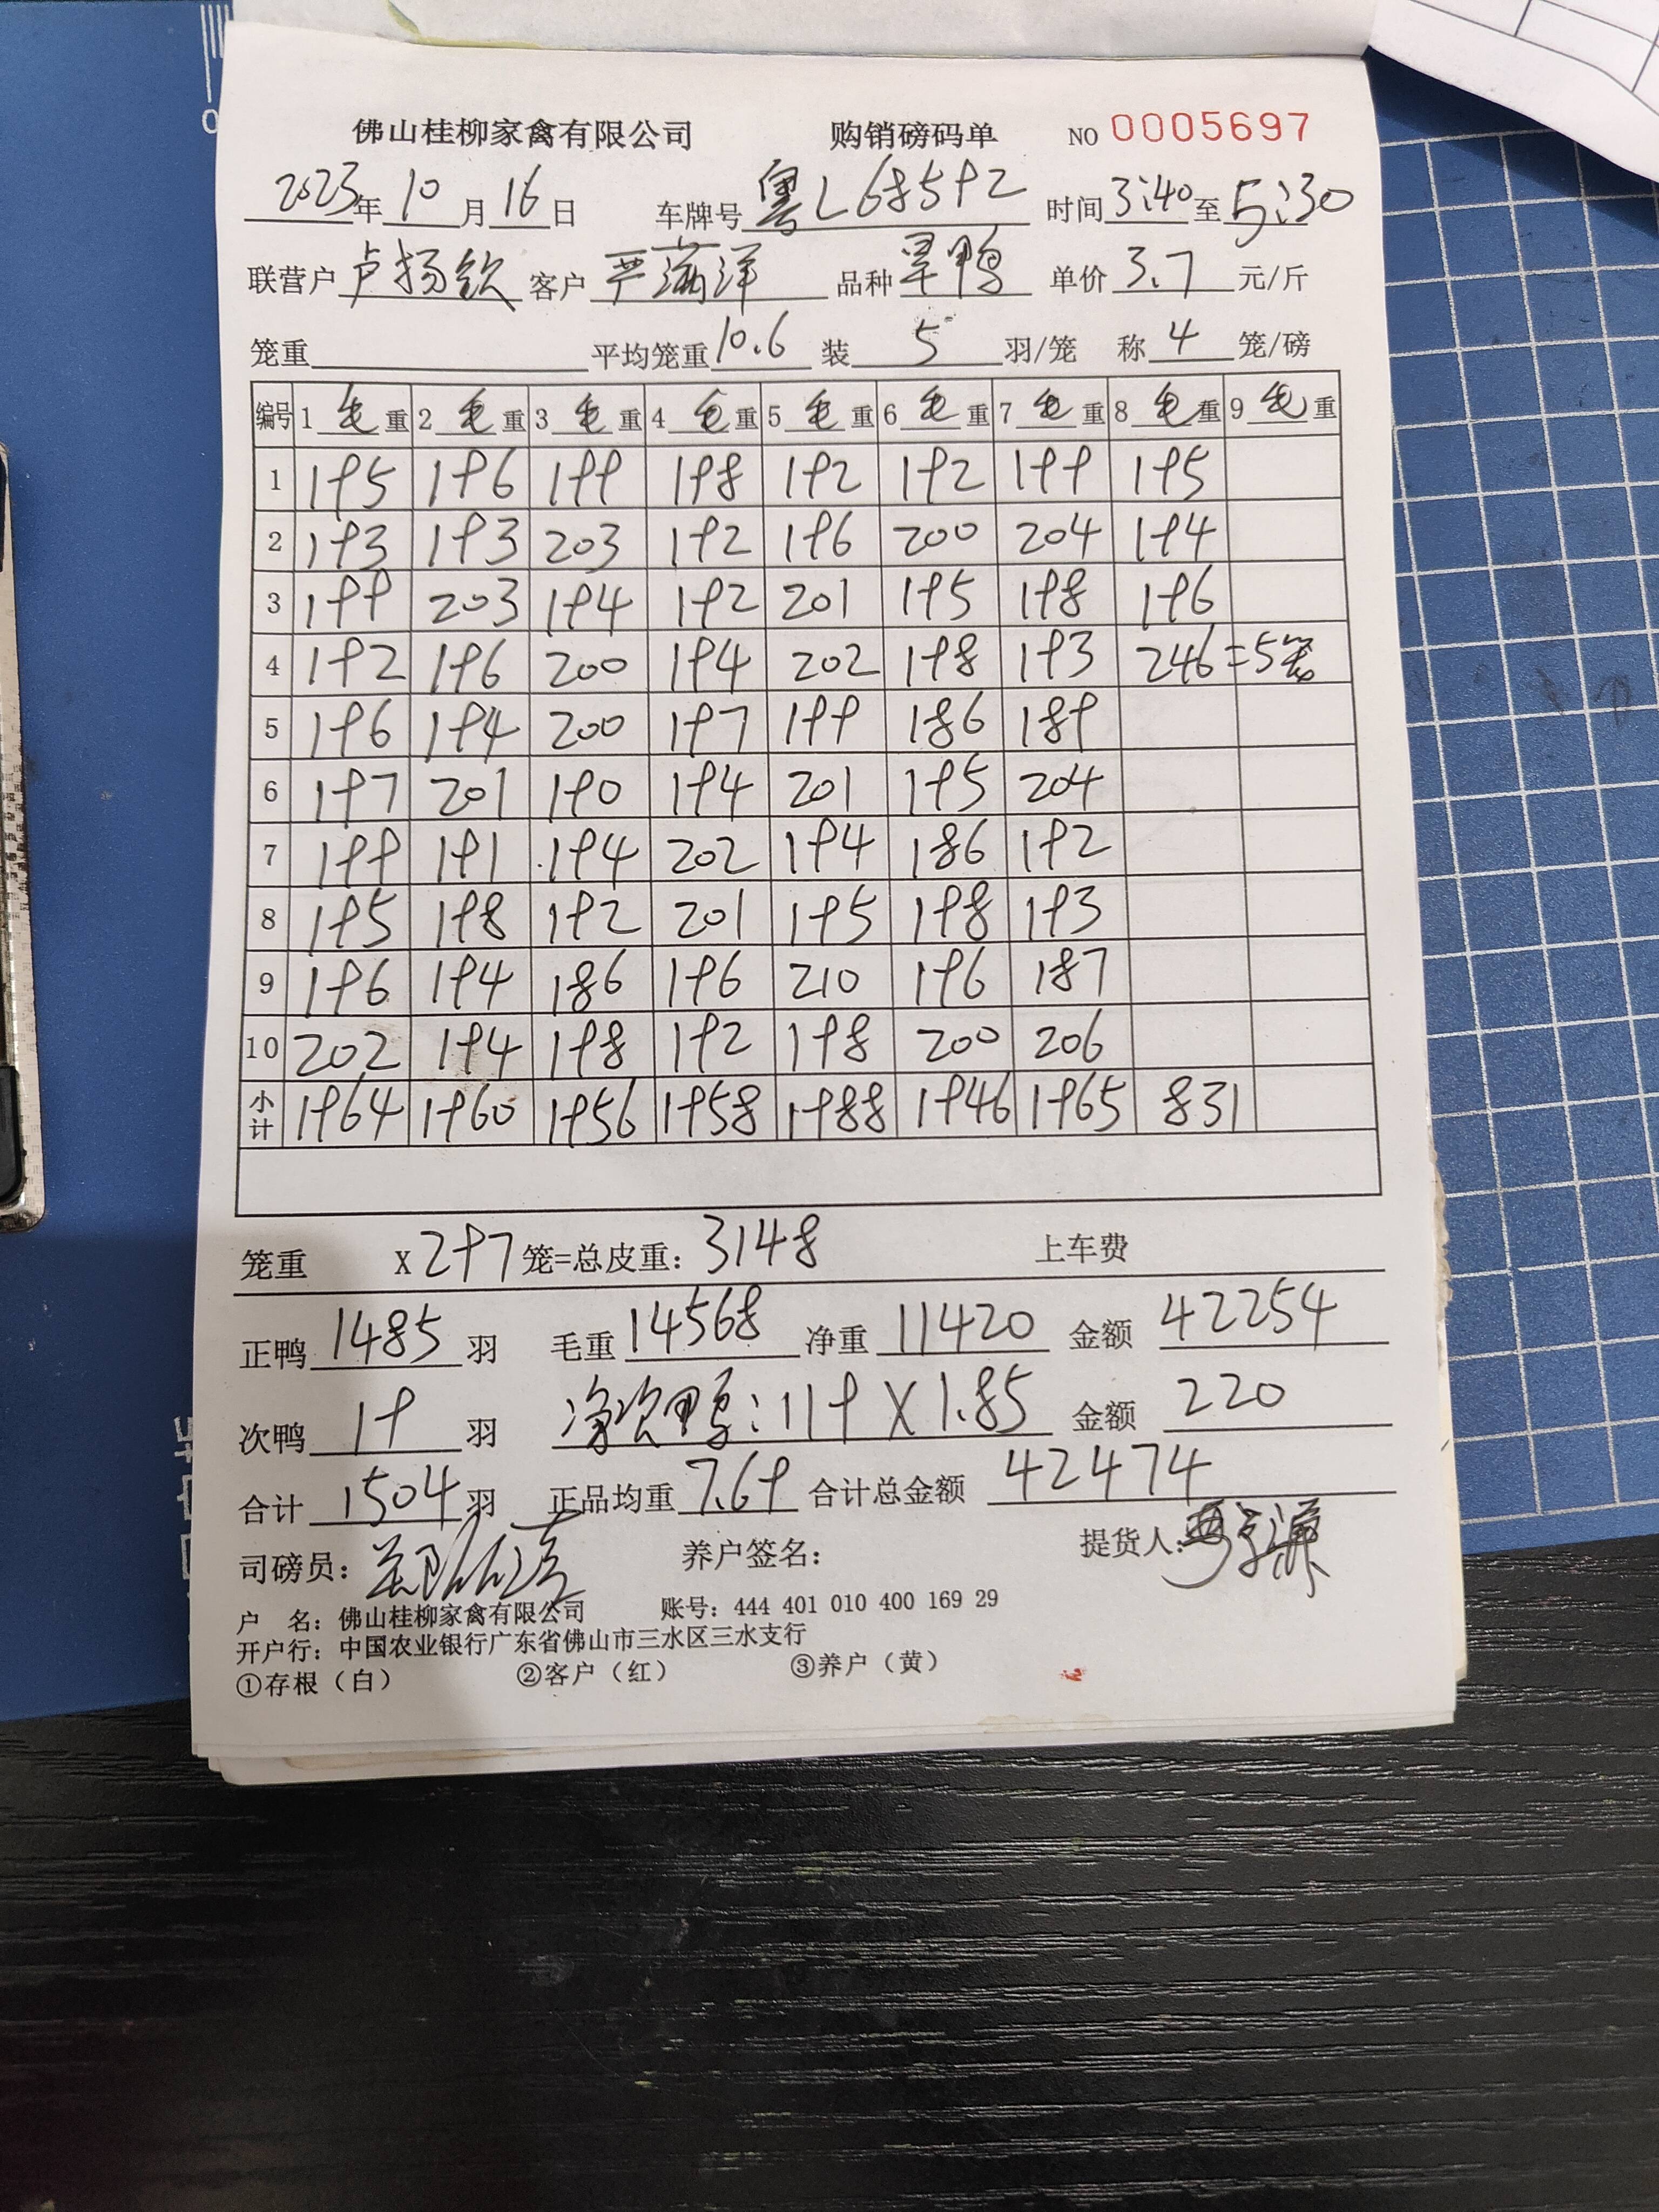 佛山桂柳家禽有限公司 购销磅码单 NO 0005697
2023年10月16日 车牌号粤L68592 时间3:40至5:30
联营户卢扬钦 客户严满洋 品种旱鸭 单价3.7元/斤
笼重 平均笼重10.6 装5羽/笼 称4笼/磅
编号 1毛重 2毛重 3毛重 4毛重 5毛重 6毛重 7毛重 8毛重 9毛重
1 195 196 199 198 192 192 199 195
2 193 193 203 192 196 200 204 194
3 199 203 194 192 201 195 198 196
4 192 196 200 194 202 198 193 246=5笼
5 196 194 200 197 199 186 189
6 197 201 190 194 201 195 204
7 199 191 194 202 194 186 192
8 195 198 192 201 195 198 193
9 196 194 186 196 210 196 187
10 202 194 198 192 198 200 206
小计 1964 1960 1956 1958 1988 1946 1965 831
笼重 X297笼=总皮重：3148 上车费
正鸭1485羽 毛重14568 净重11420 金额42254
次鸭19羽 净次鸭：119X1.85 金额220
合计1504羽 正品均重7.69 合计总金额42474
司磅员： 养户签名： 提货人：
户 名：佛山桂柳家禽有限公司 账号：444 401 010 400 169 29
开户行：中国农业银行广东省佛山市三水区三水支行
①存根（白） ②客户（红） ③养户（黄）